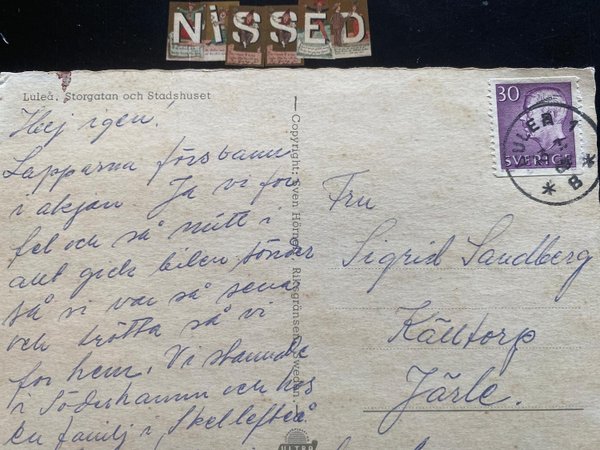 NiSSED
Luleå. Storgatan och Stadshuset
Hej igen!
Lapparna försvann
i akjan Ja vi for
fel och så mitt i
allt gick bilen sönder
så vi var så sena
och trötta så vi
for hem. Vi stannade
i Söderhamn och hos
en familj i Skellefteå
Copyright: Sven Hörnell, Riksgränsen, Sweden.
30
SVERIGE
LULEÅ 1
B
Fru
Sigrid Sandberg
Källtorp
Järle.
ULTRA